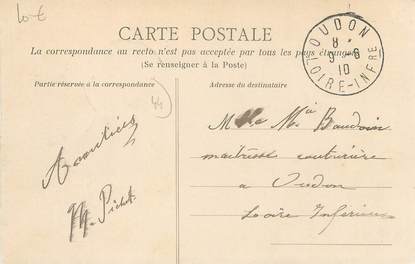 10 €
CARTE POSTALE
La correspondance au recto n'est pas acceptée par tous les pays étrangers
(Se renseigner à la Poste)
OUDON
8 *
9-8
10
LOIRE-INFRE
Partie réservée à la correspondance
Adresse du destinataire
44
Amitiés
M. Pichet
Mlle Mia Baudoin
maîtresse couturière
a Oudon
Loire Inférieure